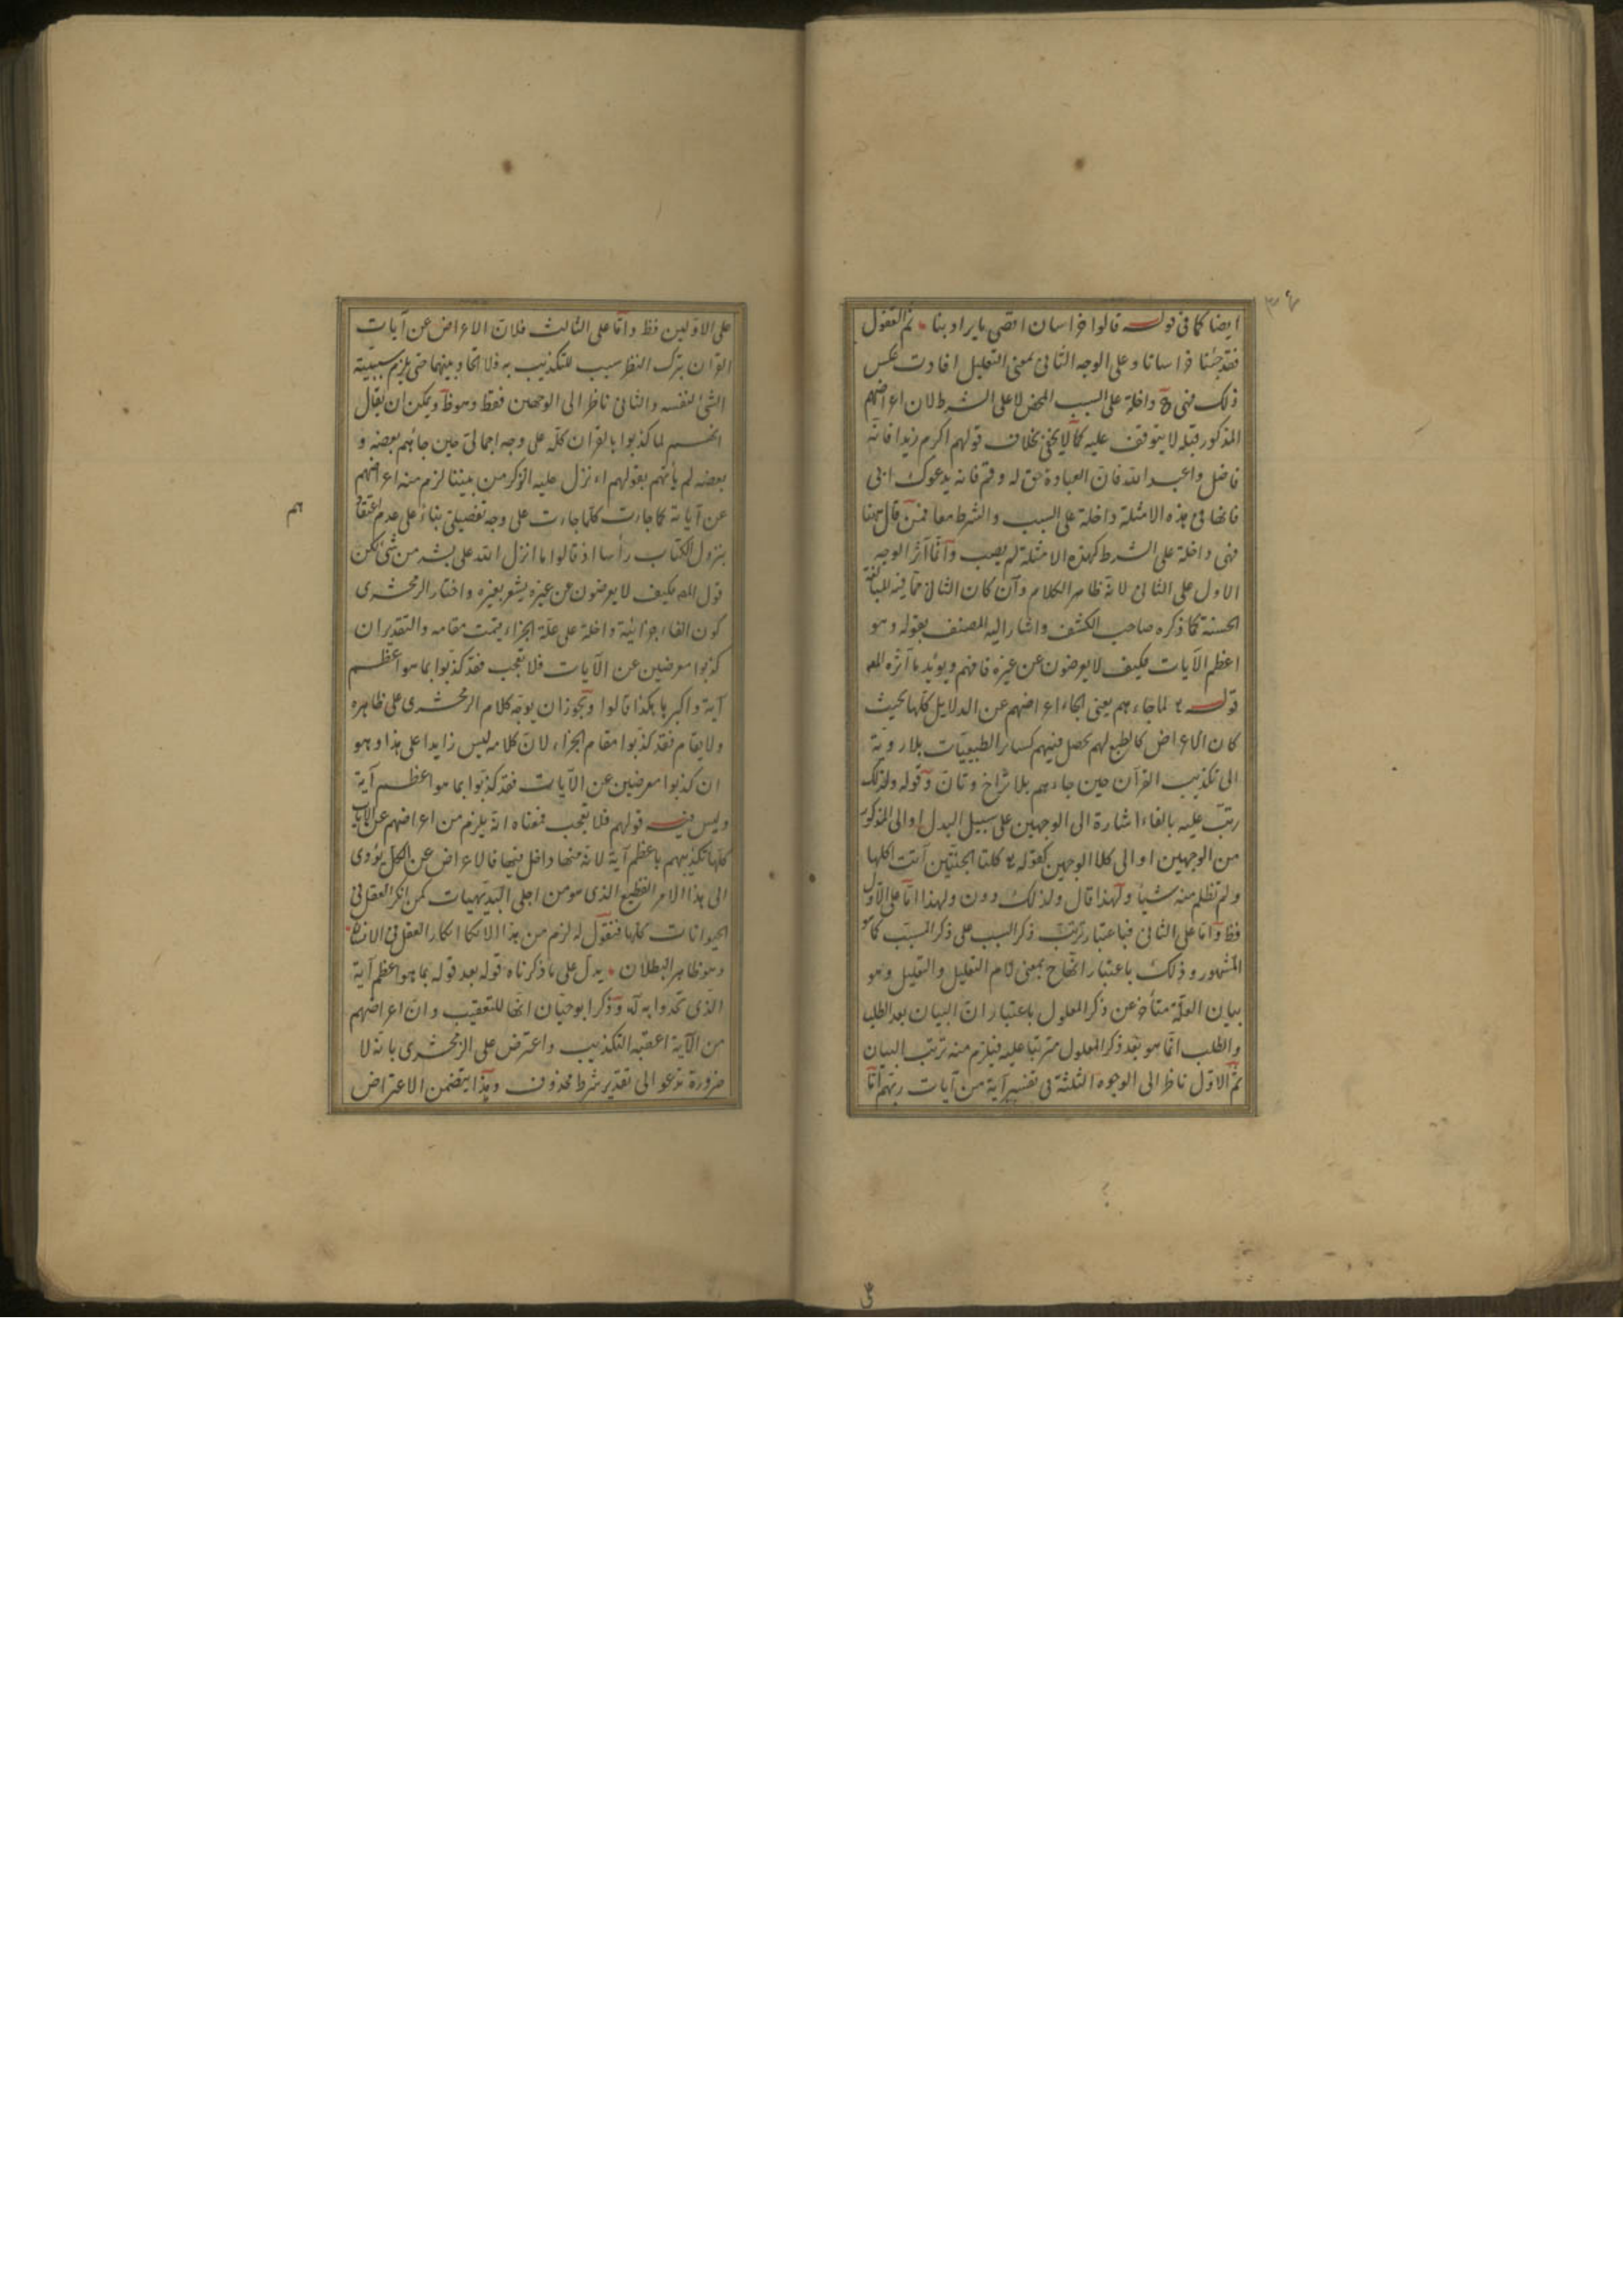 ايضا كما في قوله قالوا خراسان اقصى ما يراد بنا ثم القفول
فقد جئنا خراسانا وعلى الوجه الثاني بمعنى التعليل افادت عكس
ذلك فهي داخلة على السبب المحض لا على الشرط لان اعراضهم
المذكور قبله لا يتوقف عليه كما لا يخفى بخلاف قولهم اكرم زيدا فانه
فاضل واعبد الله فان العبادة حق له وقم فانه يدعوك ابى
فانها في هذه الامثلة داخلة على السبب والشرط معا فمن قال ههنا
فهي داخلة على الشرط كهذه الامثلة لم يصب وانما آثر الوجه
الاول على الثاني لانه ظاهر الكلام وان كان الثاني مما فيه المبالغة
الحسنة كما ذكره صاحب الكشف واشار اليه المصنف بقوله وهو
اعظم الآيات فكيف لا يعرضون عن غيره فافهم ويؤيد ما آثره المص
قوله لما جاءهم يعني الجاء اعراضهم عن الدلايل كلها بحيث
كان الاعراض كالطبع لهم يحصل فيهم كسائر الطبيعيات بلا روية
الى تكذيب القرآن حين جاءهم بلا تراخ وتأن وقوله ولذلك
رتب عليه بالفاء اشارة الى الوجهين على سبيل البدل او الى المذكور
من الوجهين او الى كلا الوجهين كقوله كلتا الجنتين آتت اكلها
ولم تظلم منه شيأ ولهذا قال ولذلك دون ولهذا اما على الاول
فظ واما على الثاني فباعتبار ترتب ذكر السبب على ذكر المسبب كما هو
المشهور وذلك باعتبار بمعنى لام التعليل والتعليل وهو
بيان العلة متأخر عن ذكر المعلول باعتبار ان البيان بعد الطلب
والطلب انما هو بعد ذكر المعلول مترتبا عليه فيلزم منه ترتب البيان
ثم الاول ناظر الى الوجوه الثلثة في تفسير آية من آيات ربهم اما
على الاولين فظ واما على الثالث فلان الاعراض عن آيات
القران بترك النظر سبب للتكذيب به فلا اتحاد بينهما حتى يلزم سببية
الشئ لنفسه والثاني ناظر الى الوجهين فقط وهو ظ ويمكن ان يقال
انهم لما كذبوا بالقران كله على وجه اجمالي حين جائهم بعضه و
بعضه لم يأتهم بقولهم اء نزل عليه الذكر من بيننا لزم منه اعراضهم
عن آياته كما جاءت كلما جاءت على وجه تفصيلي بناء على عدم اعتقاد
هم
بنزول الكتاب رأسا اذ قالوا ما انزل الله على بشر من شئ لكن
قول المص فكيف لا يعرضون عن غيره يشعر بغيره واختار الزمخشرى
كون الفاء جزائية داخلة على علة الجزاء اقيمت مقامه والتقدير ان
كذبوا معرضين عن الآيات فلا تعجب فقد كذبوا بما هو اعظم
آية واكبرها هكذا قالوا وتجوز ان يوجه كلام الزمخشرى على ظاهره
ولا يقام فقد كذبوا مقام الجزاء لان كلامه ليس زايدا على هذا وهو
ان كذبوا معرضين عن الآيات فقد كذبوا بما هو اعظم آية
وليس فيه قولهم فلا تعجب فمعناه انه يلزم من اعراضهم عن الآيات
كلها تكذيبهم باعظم آية لانه منها داخل فيها فالاعراض عن الكل يؤدى
الى هذا الامر الفظيع الذى هو من اجلى البديهيات كمن انكر العقل في
الحيوانات كلها فنقول له لزم من هذا الانكار انكار العقل في الانسان
وهو ظاهر البطلان يدل على ما ذكرناه قوله بعد قوله بما هو اعظم آية
الذى تحدوا به وذكر ابو حيان انها للتعقيب وان اعراضهم
من الآية اعقبه التكذيب واعترض على الزمخشرى بانه لا
ضرورة تدعو الى تقدير شرط محذوف وهذا يتضمن الاعتراض